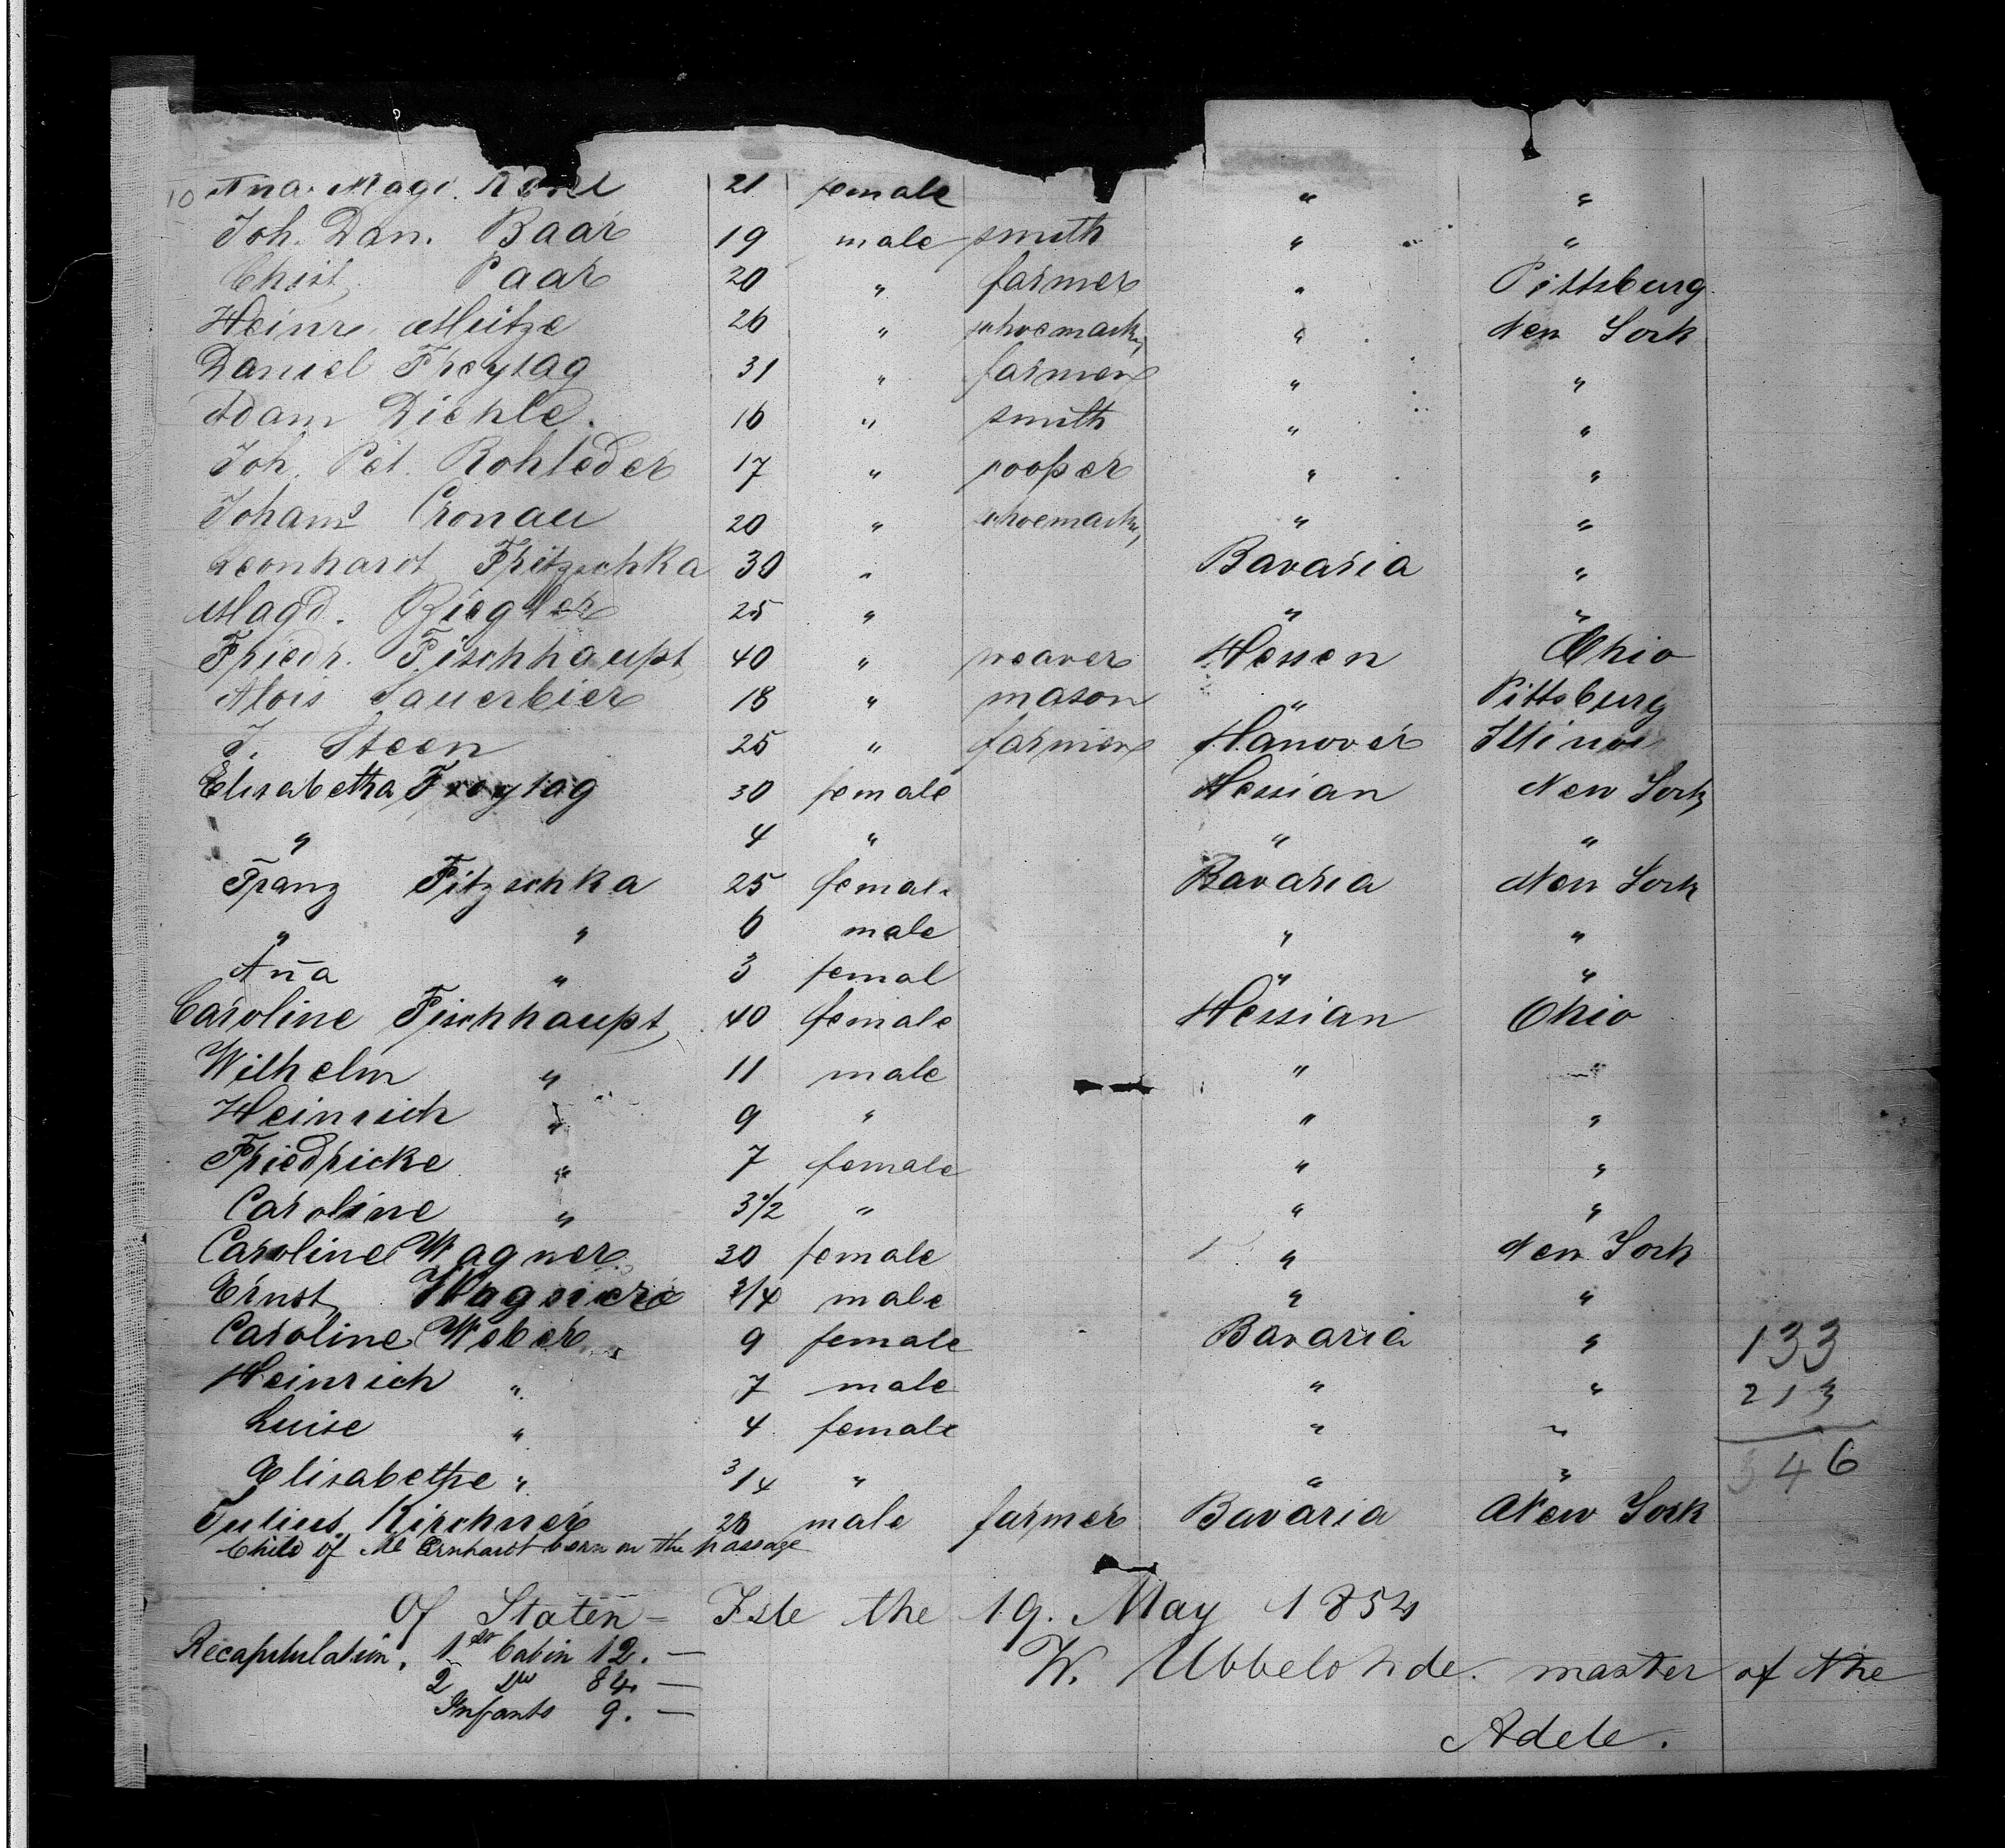 10 Ana. Mage. 21 female " "
Joh. Dan. Baar 19 male smith " "
Christ. Paar 20 " farmer " Pittsburg
Heinr. Meitze 26 " shoemack, " New York
Daniel Freytag 31 " farmer " "
Adam Diehle. 16 " smith " "
Joh. Pet. Rohleder 17 " cooper " "
Johams Cronau 20 " shoemack, " "
Leonhardt Fritzschka 30 " Bavaria "
Magd. Ziegler 25 " " "
Friedr. Fischhaupt 40 " weaver Hessen Ohio
Alois Sauerbier 18 " mason " Pittsburg
J. Steen 25 " farmer Hanover Illinois
Elisabetha Freytag 30 female Hessian New York
" 4 " " "
Franz Fitzschka 25 female Bavaria New York
" " 6 male " "
Ana " 3 femal " "
Caroline Fischhaupt 40 female Hessian Ohio
Wilhelm " 11 male " "
Heinrich " 9 " " "
Friedricke " 7 female " "
Caroline " 3 1/2 " " "
Caroline Wagner 30 female " New York
Ernst Wagner 3/4 male " "
Caroline Weber 9 female Bavaria " 133
Heinrich " 7 male " " 213
Luise " 4 female " "
Elisabethe " 3/4 " " " 346
Julius Kirchner 28 male farmer Bavaria New York
Child of Me Ernhardt born on the passage
Of Staten = Isle the 19. May 1854
Recapitulation. 1st Cabin 12. —
2 do 84 —
Infants 9. —
W. Ubbelohde. master of the
Adele.